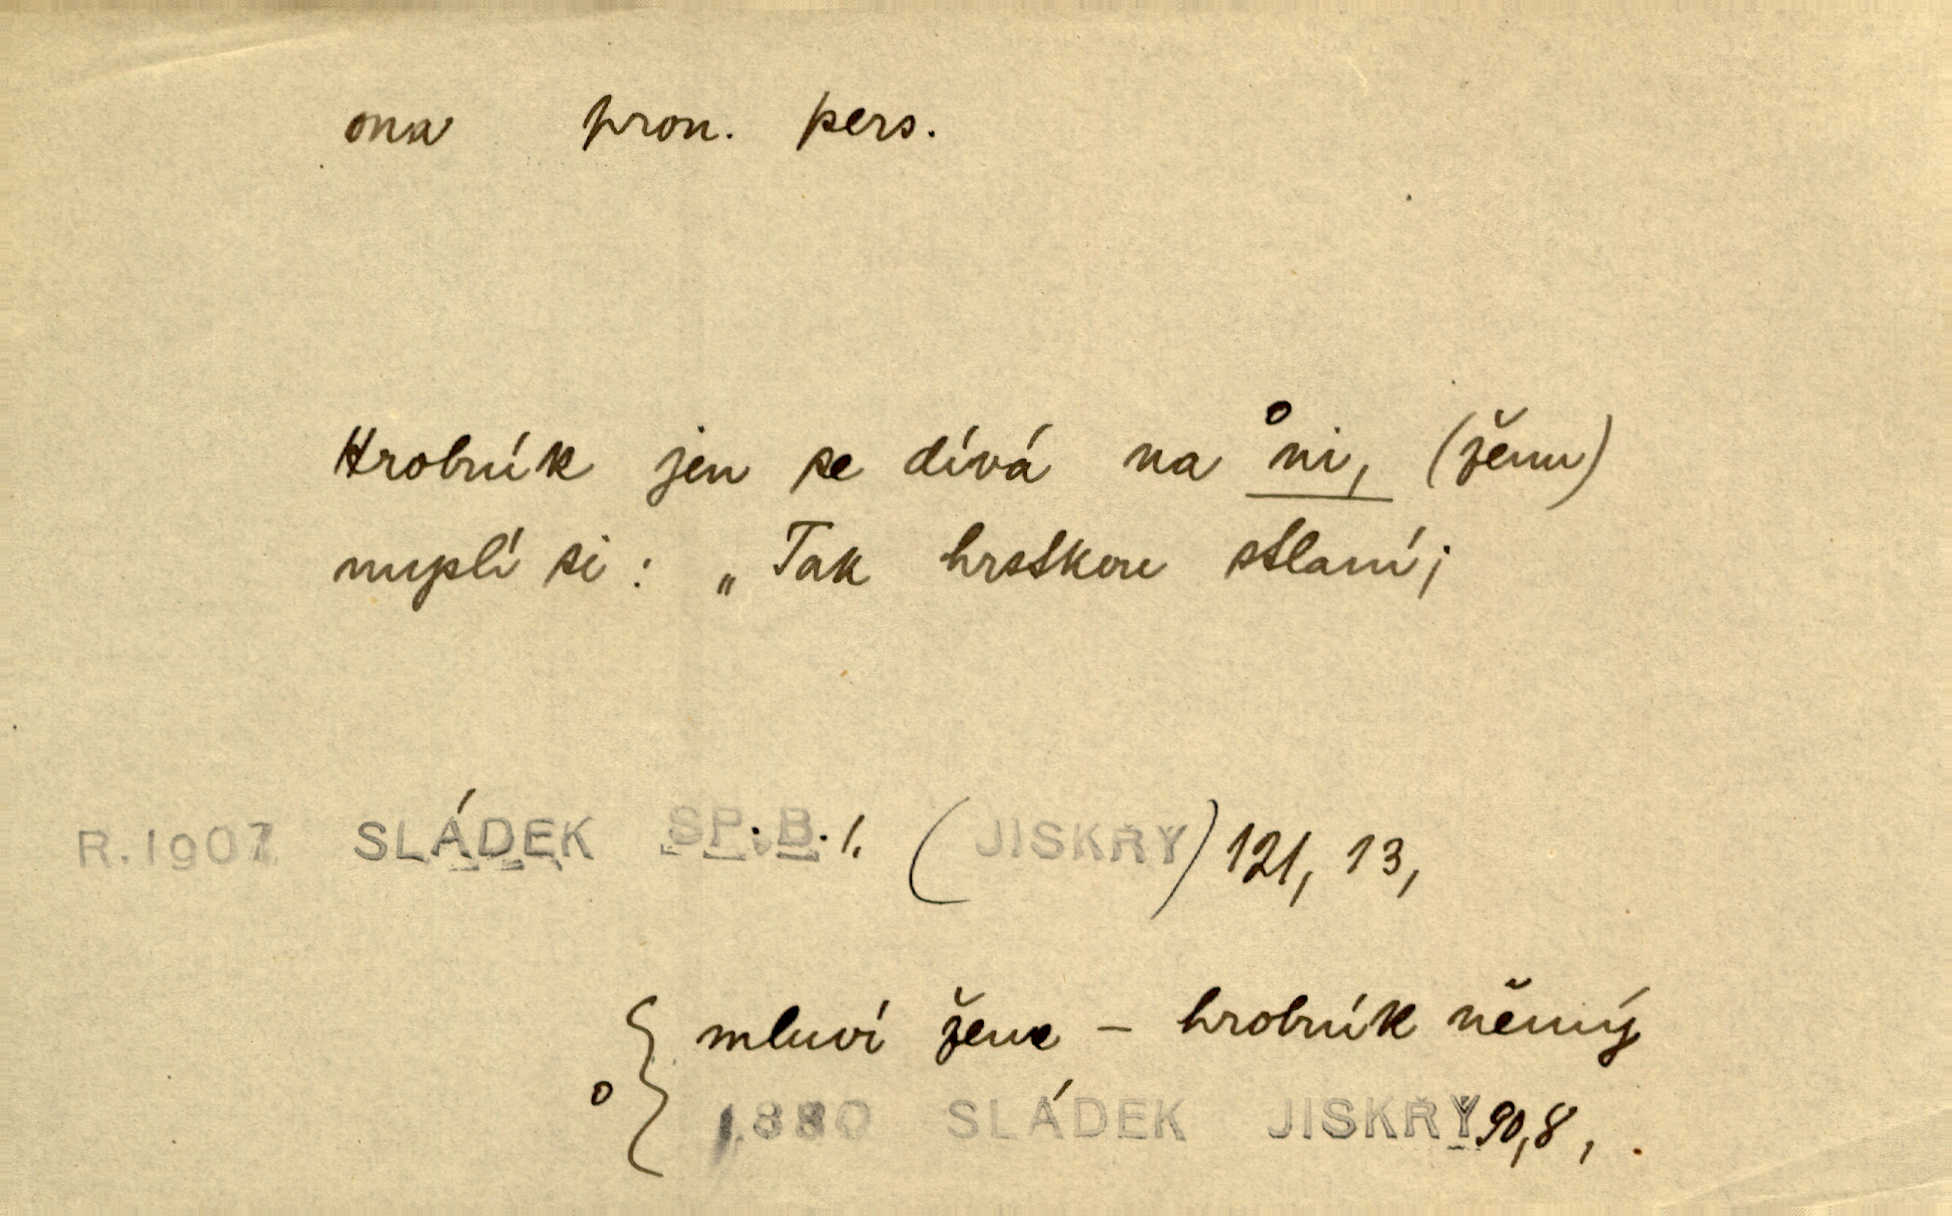 ona pron. pers.
Hrobník jen se dívá na °ni, (ženu)
myslí si: „Tak hrstkou stlaní;
R. 1907 SLÁDEK SP. B. 1. (JISKRY) 121, 13,
mluví žena – hrobník němý
o { 1880 SLÁDEK JISKRY 90,8, .